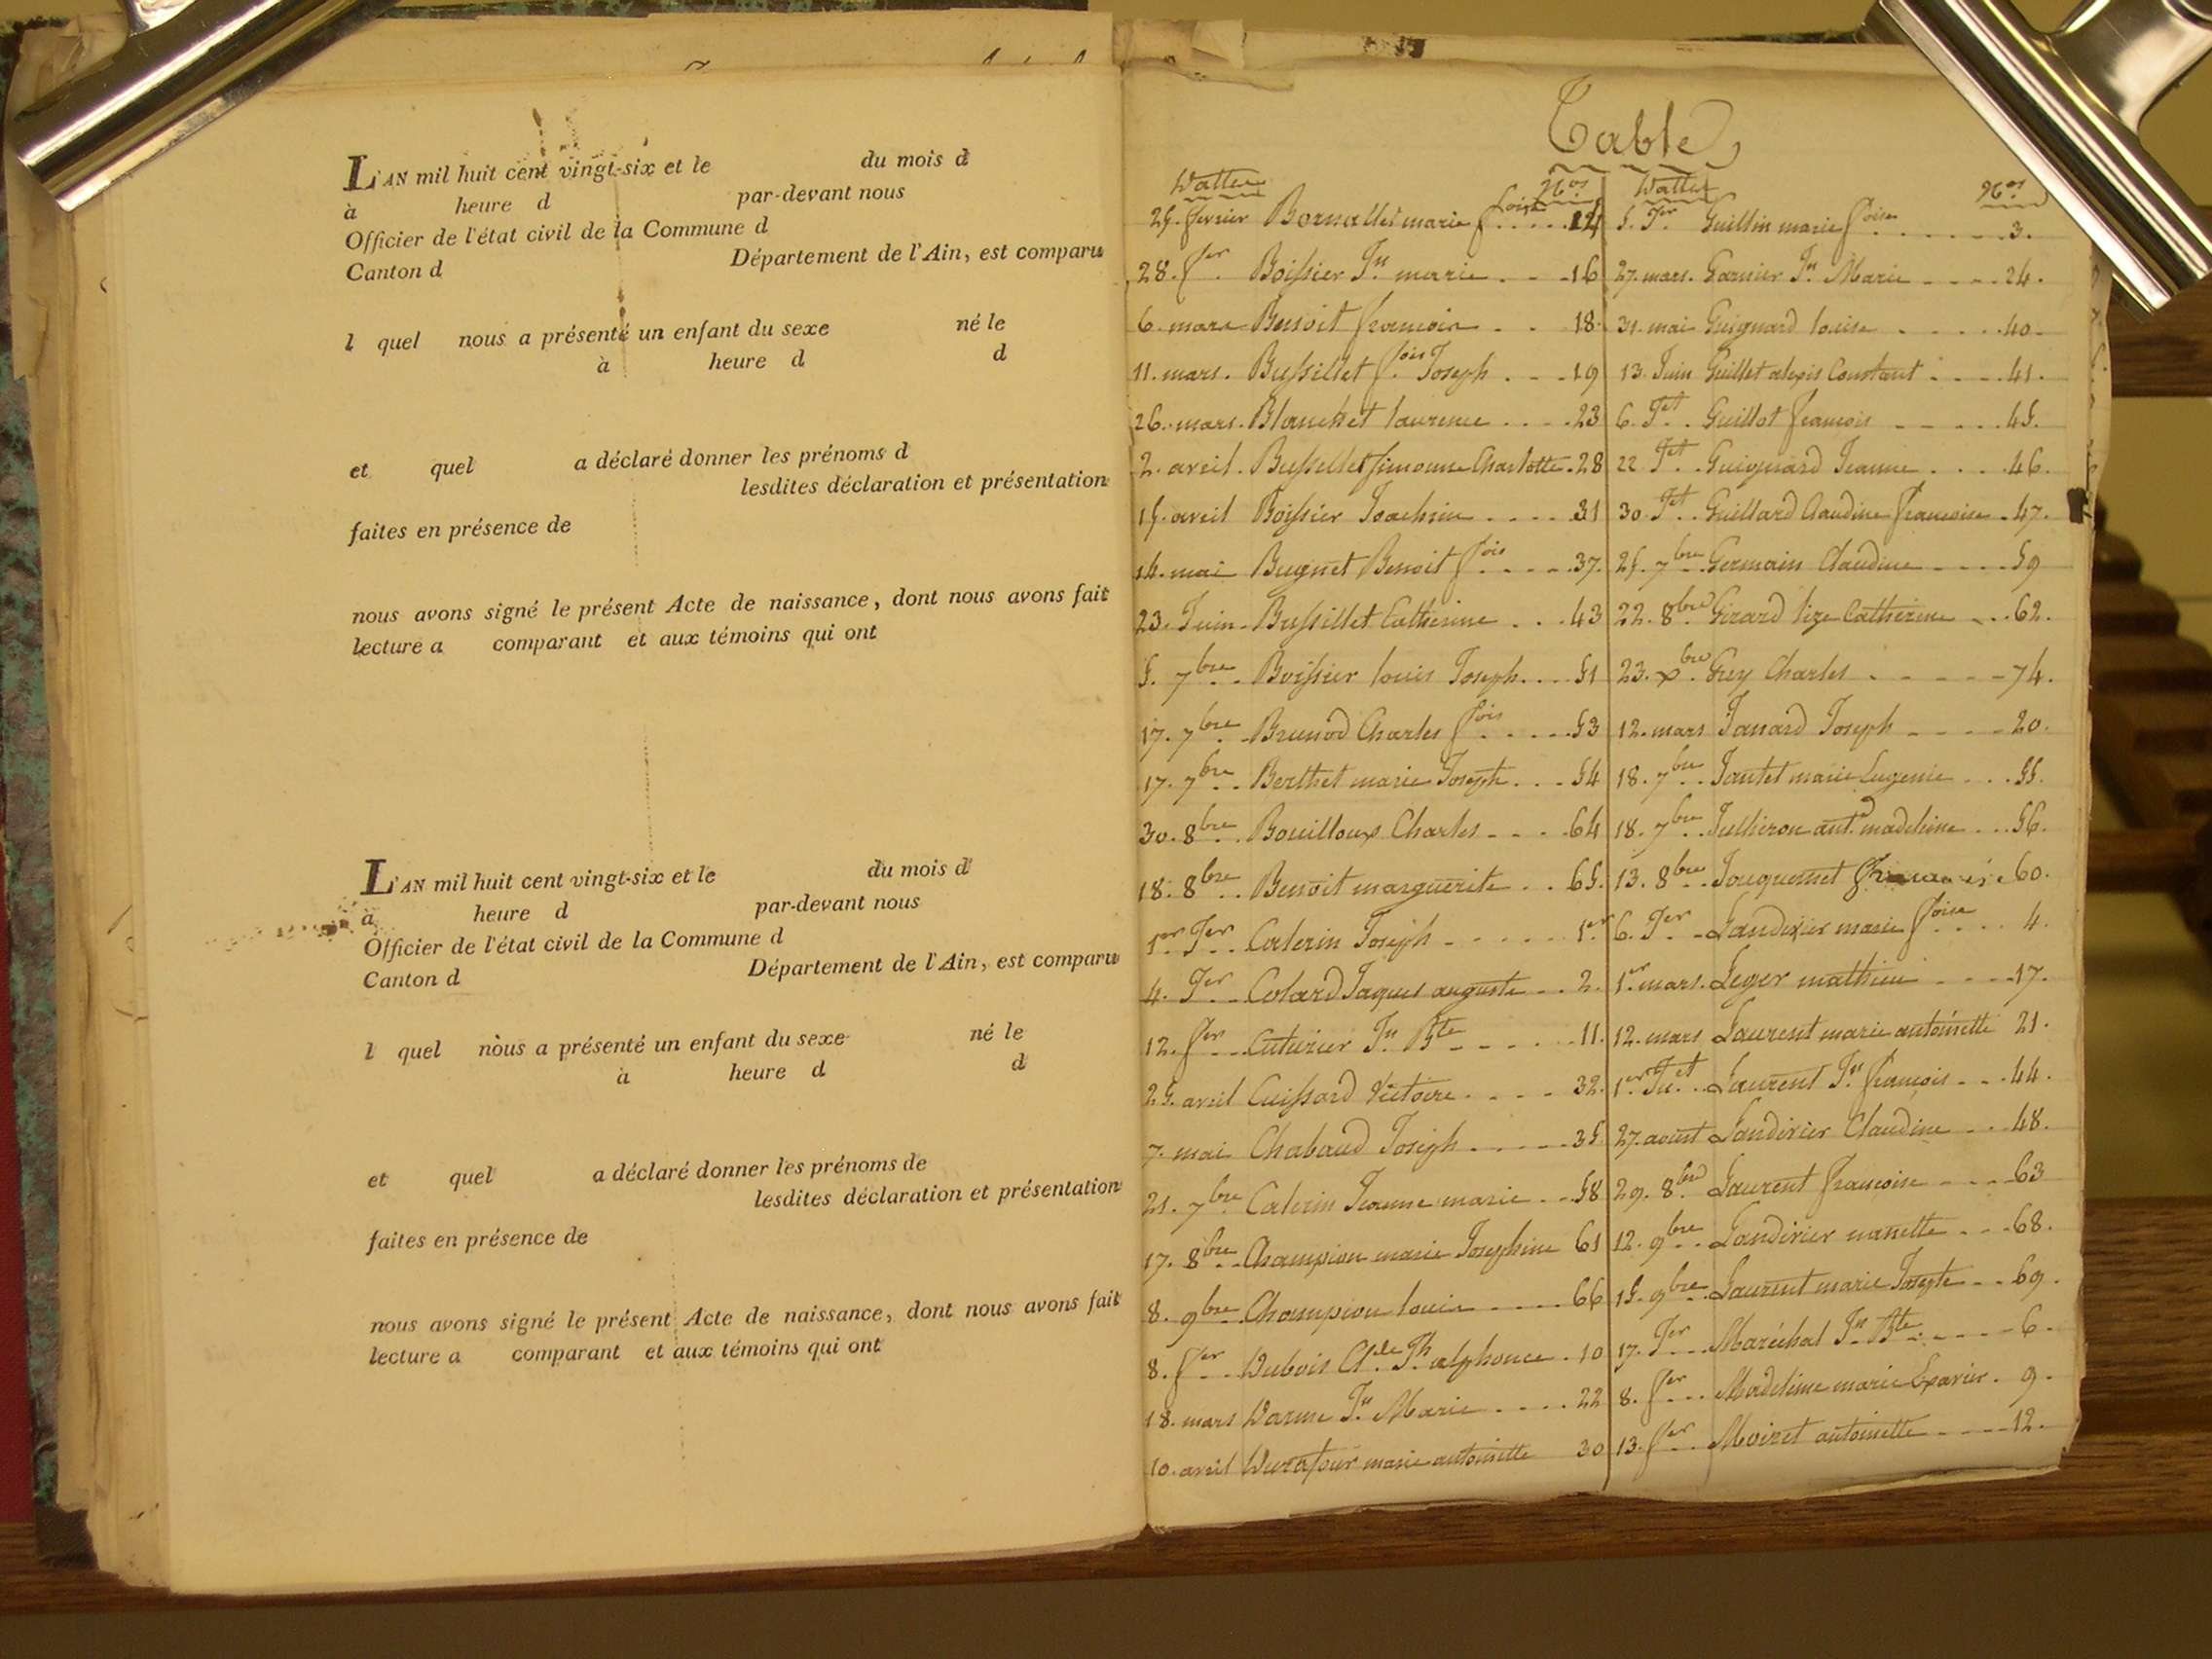 L'AN mil huit cent vingt-six et le du mois d
à heure d par-devant nous
Officier de l'état civil de la Commune d
Canton d Département de l'Ain, est comparu
l quel nous a présenté un enfant du sexe né le
à heure d d
et quel a déclaré donner les prénoms d
lesdites déclaration et présentation
faites en présence de
nous avons signé le présent Acte de naissance, dont nous avons fait
lecture a comparant et aux témoins qui ont
L'AN mil huit cent vingt-six et le du mois d
à heure d par-devant nous
Officier de l'état civil de la Commune d
Canton d Département de l'Ain, est comparu
l quel nous a présenté un enfant du sexe né le
à heure d d
et quel a déclaré donner les prénoms de
lesdites déclaration et présentation
faites en présence de
nous avons signé le présent Acte de naissance, dont nous avons fait
lecture a comparant et aux témoins qui ont
Table
Dattes Nos
25. fevrier marie foise 14
28. fer Boissier Jn marie 16
6. mars Benoit francois 18.
11. mars. Bussillet fois Joseph 19
26. mars. Blanchet laurence 23
2. avril. Bussillet simonne Charlotte 28
15. avril Boissier Joachim 31
14. mai Bugnet Benoit fois 37.
23. Juin Bussillet Catherine 43
5. 7bre Boissier louis Joseph 51
17. 7bre Brunod Charles fois 53
17. 7bre Berthet marie Joseph 54
30. 8bre Bouilloux Charles 64
18. 8bre Benoit marguerite 65.
1er Jer Caterin Joseph 1er
4. Jer Colard Jaques auguste 2.
12. fer Cuturier Jn Bte 11.
25. avril Cuissard Victoire 32.
7. mai Chabaud Joseph 35
21. 7bre Caterin Jeanne marie 58
17. 8bre Champion marie Josephine 61
8. 9bre Champion louis 66
8. fer Dubois Cl.de Jh alphonce 10
18. mars Darme Jn Marie 22
10. avril Durafour marie antoinette 30
Dattes Nos
5. Jer Guillin marie foise 3.
27. mars. Garnier Jn Marie 24.
31. mai Guignard louise 40.
13. Juin Guillet alexis Constant 41.
6. Jet Guillot francois 45.
22 Jet Guignard Jeanne 46.
30. Jet Guillard Claudine francoise 47.
25. 7bre Germain Claudine 59
22. 8bre Girard lize Catherine 62.
23. xbre Grey Charles 74.
12. mars Janard Joseph 20.
18. 7bre Jantet marie Eugenie 55.
18. 7bre Jullieron ant. madeleine 56.
13. 8bre Jouquemet 60.
6. Jer Landirier marie foise 4.
1er mars. Leger mathieu 17.
12. mars Laurent marie antoinette 21.
1er Juet Laurent Jn francois 44.
27. aoust Landirier Claudine 48.
29. 8bre Laurent francoise 63
12. 9bre Landirier nanette 68.
15. 9bre Laurent marie Josephe 69.
17. Jer Maréchal Jn Bte 6.
8. fer Madeleine marie Exavier. 9.
13. fer Moiret antoinette 12.